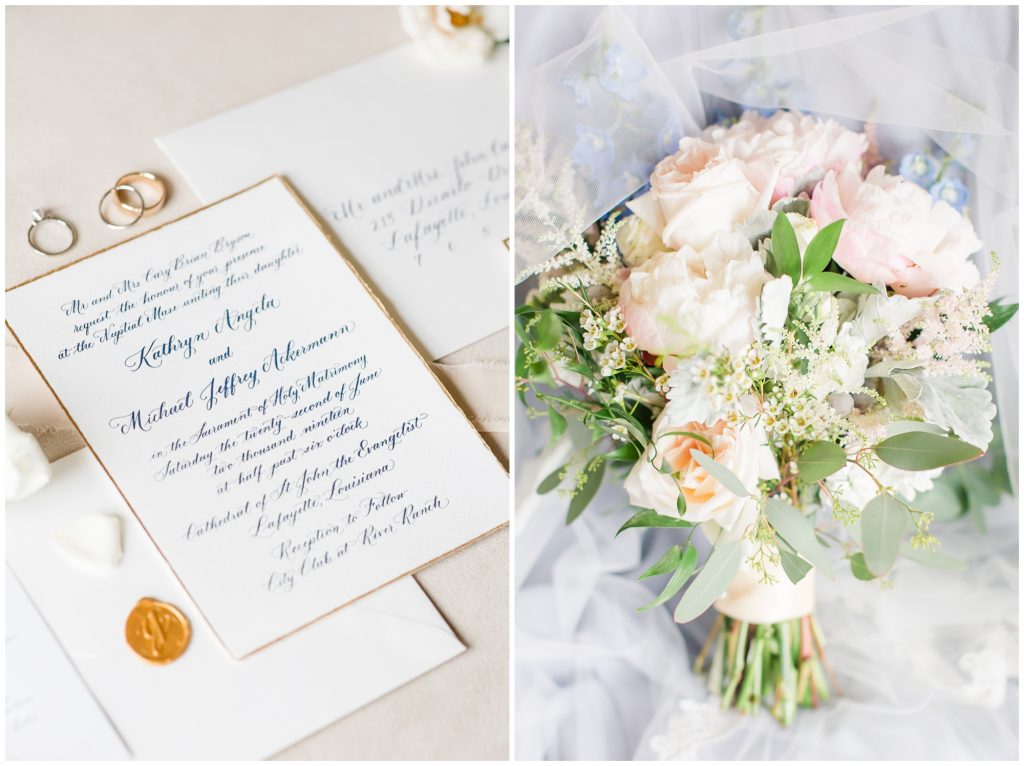 Mr and Mrs Cary Brian Bryson
request the honour of your presence
at the Nuptial Mass uniting their daughter
Kathryn Angela
and
Michael Jeffrey Ackermann
in the Sacrament of Holy Matrimony
Saturday the twenty-second of June
two thousand nineteen
at half past six o'clock
Cathedral of St John the Evangelist
Lafayette, Louisiana
Reception to Follow
City Club at River Ranch
Mr and Mrs. John
215 Dicarlo
Lafayette,
7 0 5